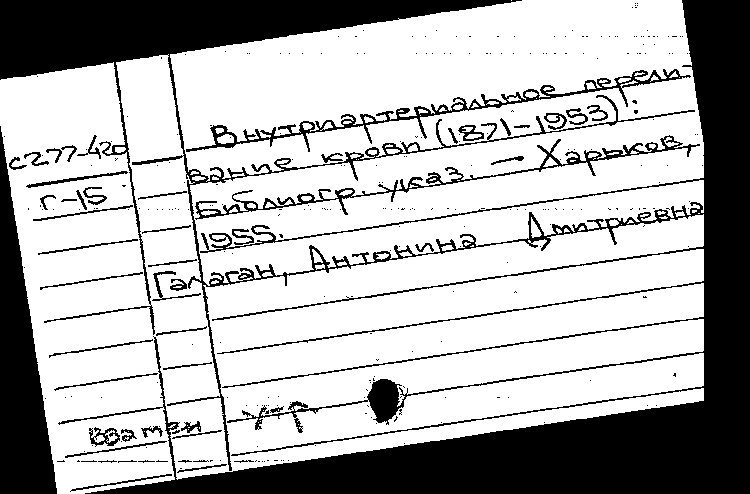 Внутриартериальное перели-
с277-420 вание крови (1871-1953):
Г-15 Библиогр. указ. — Харьков,
1955.
Галаган, Антонина Дмитриевна
взамен